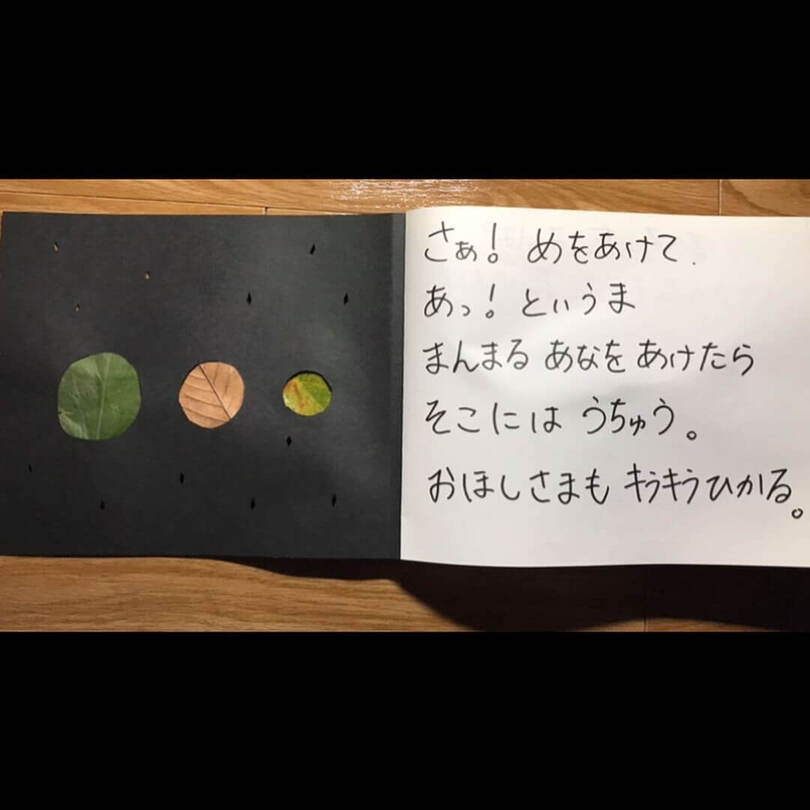 さぁ! めをあけて.
あっ! というま
まんまる あなを あけたら
そこには うちゅう。
おほしさまも キラキラひかる。